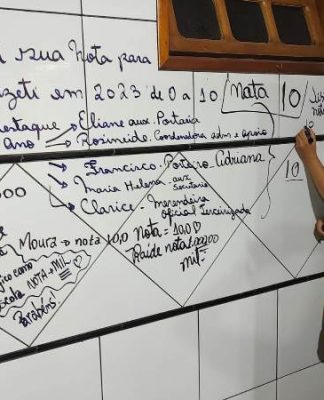 sua Nota para
zeti em 2023 de 0 a 10 nota 10
estaque → Eliane aux. Portaria
Ano → Rosineide. Coordenadora adm e apoio
→ Francisco. Porteiro Adriana
→ Maria Helena aux Secretaria
→ Clarice - Merendeira
oficial Terceirizada
10
000
Moura → nota 10,0 Nota = 1000 ♡
Raide nota 1.000,00
como NOTA + MIL
mil.
Parabéns.